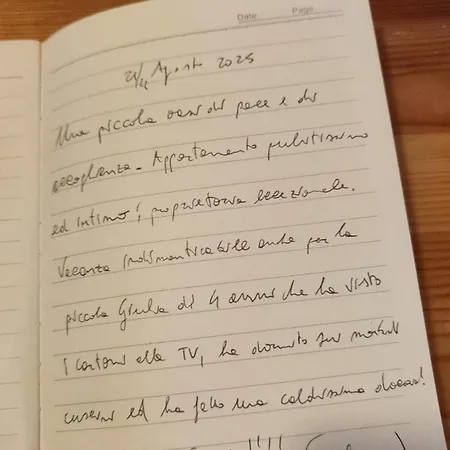 Date Page
Agosto 2025
Una piccola oasi di pace e di
accoglienza. Appartamento pulitissimo
ed intimo, proprietaria eccezionale.
Vacanza indimenticabile anche per la
piccola Giulia di 4 anni che ha visto
i cartoni alla TV, ha dormito su morbidi
cuscini ed ha fatto una caldissima doccia!